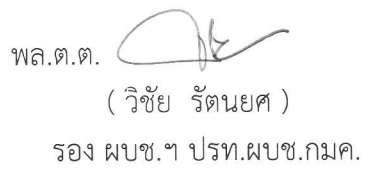 พล.ต.ต.
( วิชัย รัตนยศ )
รอง ผบช.ฯ ปรท.ผบช.กมค.